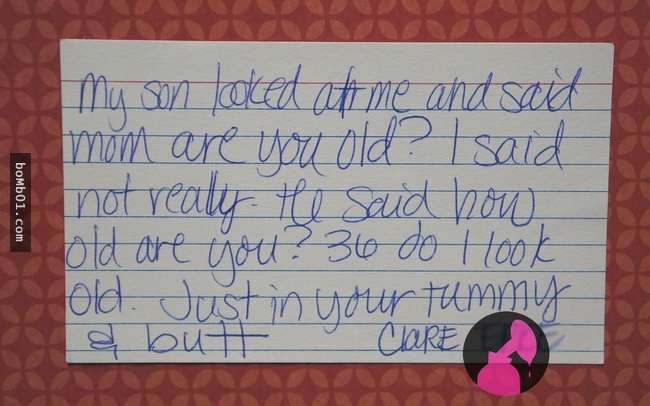 my son looked at me and said
mom are you old? I said
not really. He said how
old are you? 36 do I look
old. Just in your tummy
& butt CLARE
bomb01.com